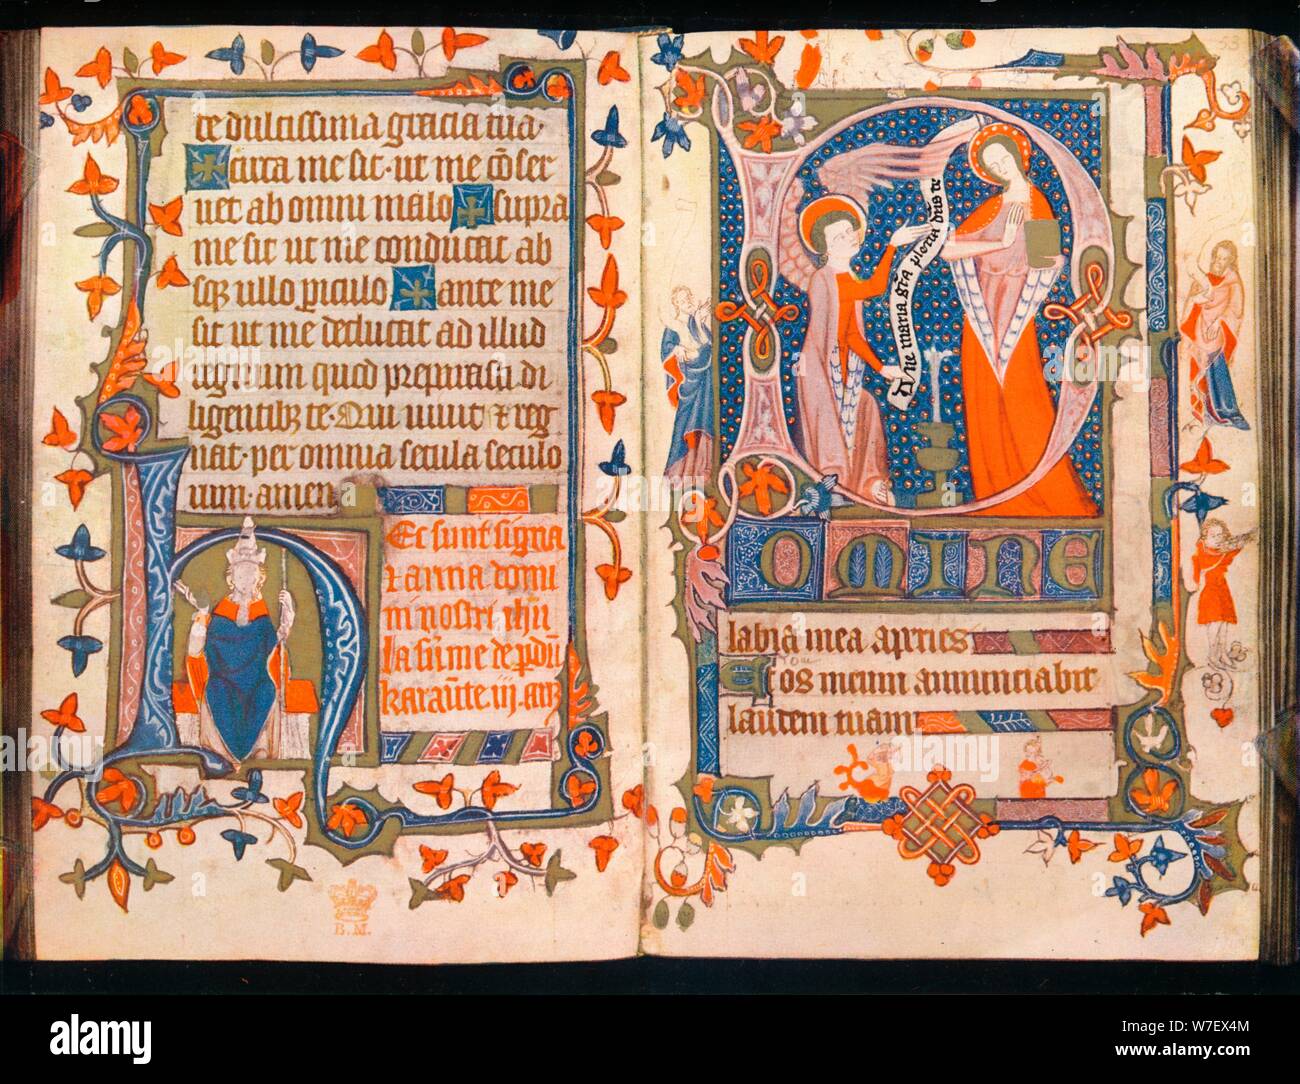 te dulcissima gracia tua.
✠ circa me sit. ut me cōser
uet ab omni malo ✠ supra
me sit ut me conducat ab
ullo piculo ✠ ante me
sit ut me deducat ad illud
regnum quod preparasti di
te. Qui uiuit & reg
nat. per omnia secula seculo
rum. amen
Ec sunt signa
& arma domi
ni nostri
B.M.
53
Aue maria gr̄a plena dn̄s te
DOMINE
labia mea apries
Et os meum annunciabit
laudem tuam
alamy
Image ID: W7EX4M
www.alamy.com